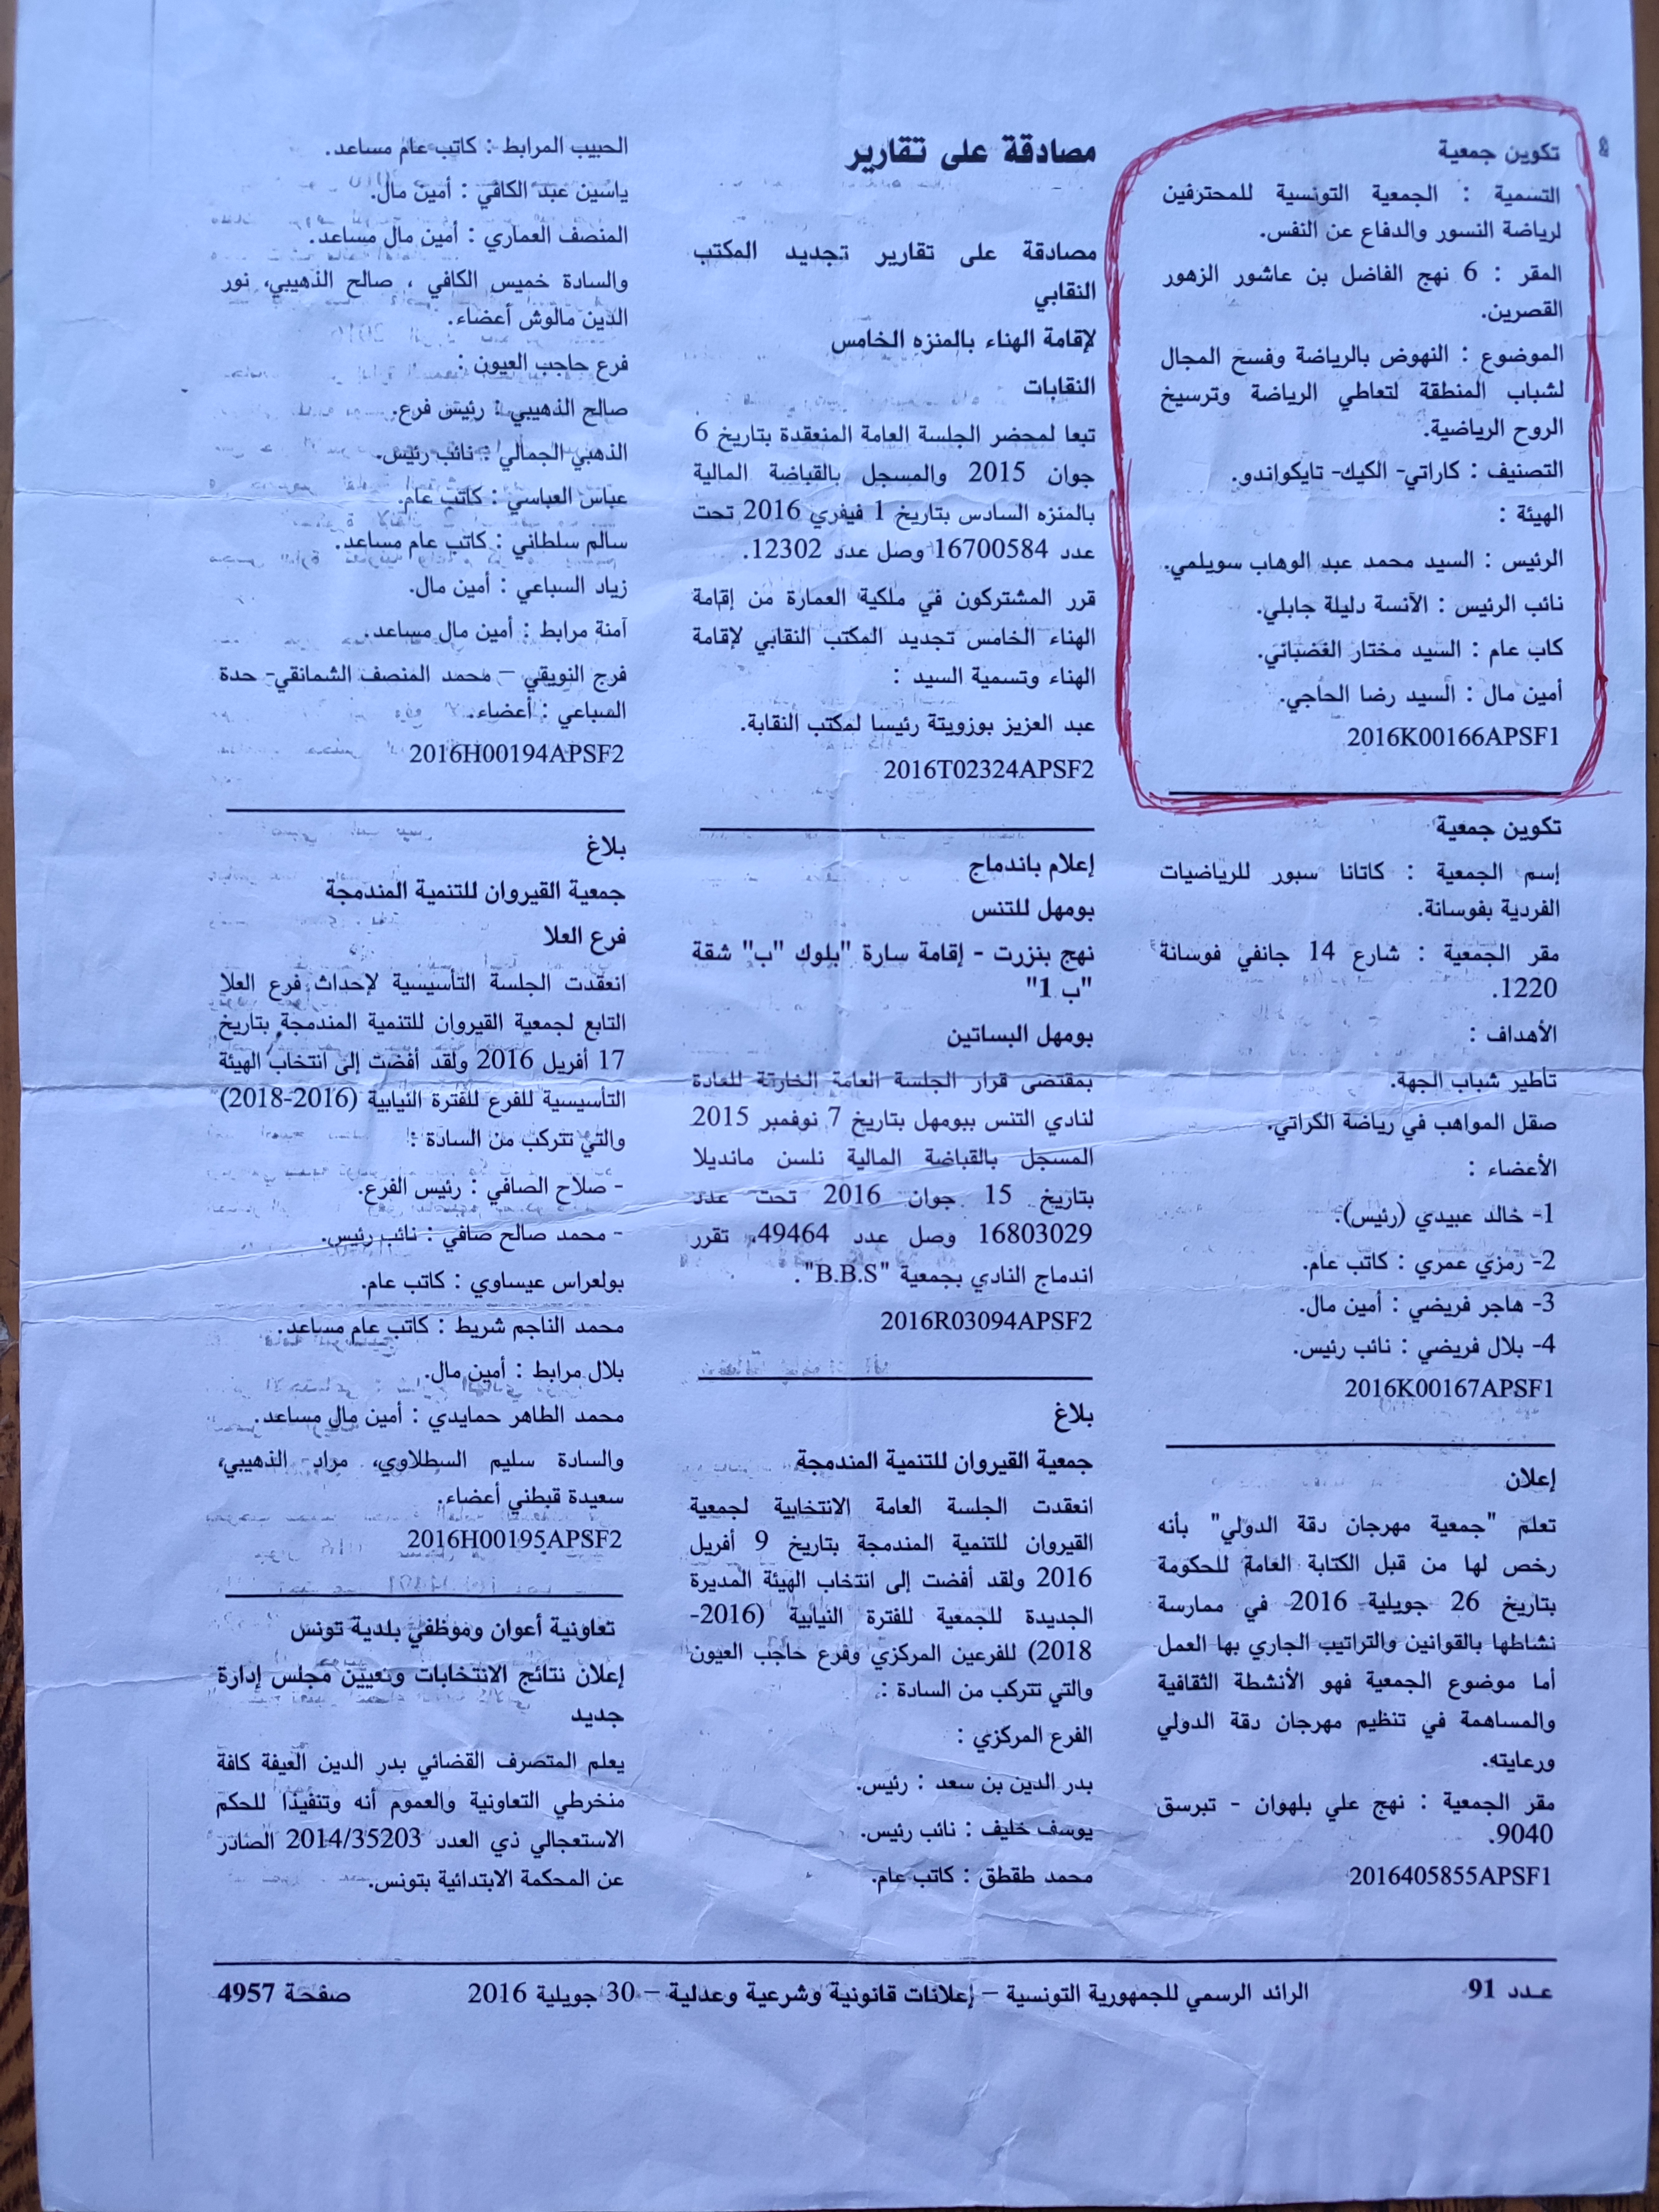 تكوين جمعية
التسمية : الجمعية التونسية للمحترفين
لرياضة النسور والدفاع عن النفس.
المقر : 6 نهج الفاضل بن عاشور الزهور
القصرين.
الموضوع : النهوض بالرياضة وفسح المجال
لشباب المنطقة لتعاطي الرياضة وترسيخ
الروح الرياضية.
التصنيف : كاراتي- الكيك- تايكواندو.
الهيئة :
الرئيس : السيد محمد عبد الوهاب سويلمي.
نائب الرئيس : الآنسة دليلة جابلي.
كاب عام : السيد مختار الغضباني.
أمين مال : السيد رضا الحاجي.
2016K00166APSF1
تكوين جمعية
إسم الجمعية : كاتانا سبور للرياضيات
الفردية بفوسانة.
مقر الجمعية : شارع 14 جانفي فوسانة
1220.
الأهداف :
تأطير شباب الجهة.
صقل المواهب في رياضة الكراتي.
الأعضاء :
1- خالد عبيدي (رئيس).
2- رمزي عمري : كاتب عام.
3- هاجر فريضي : أمين مال.
4- بلال فريضي : نائب رئيس.
2016K00167APSF1
إعلان
تعلم "جمعية مهرجان دقة الدولي" بأنه
رخص لها من قبل الكتابة العامة للحكومة
بتاريخ 26 جويلية 2016 في ممارسة
نشاطها بالقوانين والتراتيب الجاري بها العمل
أما موضوع الجمعية فهو الأنشطة الثقافية
والمساهمة في تنظيم مهرجان دقة الدولي
ورعايته.
مقر الجمعية : نهج علي بلهوان - تبرسق
9040.
2016405855APSF1
مصادقة على تقارير
مصادقة على تقارير تجديد المكتب
النقابي
لإقامة الهناء بالمنزه الخامس
النقابات
تبعا لمحضر الجلسة العامة المنعقدة بتاريخ 6
جوان 2015 والمسجل بالقباضة المالية
بالمنزه السادس بتاريخ 1 فيفري 2016 تحت
عدد 16700584 وصل عدد 12302.
قرر المشتركون في ملكية العمارة من إقامة
الهناء الخامس تجديد المكتب النقابي لإقامة
الهناء وتسمية السيد :
عبد العزيز بوزويتة رئيسا لمكتب النقابة.
2016T02324APSF2
إعلام باندماج
بومهل للتنس
نهج بنزرت - إقامة سارة "بلوك "ب" شقة
"ب 1"
بومهل البساتين
بمقتضى قرار الجلسة العامة الخارقة للعادة
لنادي التنس ببومهل بتاريخ 7 نوفمبر 2015
المسجل بالقباضة المالية نلسن مانديلا
بتاريخ 15 جوان 2016 تحت عدد
16803029 وصل عدد 49464. تقرر
اندماج النادي بجمعية "B.B.S".
2016R03094APSF2
بلاغ
جمعية القيروان للتنمية المندمجة
انعقدت الجلسة العامة الانتخابية لجمعية
القيروان للتنمية المندمجة بتاريخ 9 أفريل
2016 ولقد أفضت إلى انتخاب الهيئة المديرة
الجديدة للجمعية للفترة النيابية (2016-
2018) للفرعين المركزي وفرع حاجب العيون
والتي تتركب من السادة :
الفرع المركزي :
بدر الدين بن سعد : رئيس.
يوسف خليف : نائب رئيس.
محمد طقطق : كاتب عام.
الحبيب المرابط : كاتب عام مساعد.
ياسين عبد الكافي : أمين مال.
المنصف العماري : أمين مال مساعد.
والسادة خميس الكافي ، صالح الذهيبي، نور
الدين مالوش أعضاء.
فرع حاجب العيون :
صالح الذهيبي : رئيس فرع.
الذهبي الجمالي : نائب رئيس.
عباس العباسي : كاتب عام.
سالم سلطاني : كاتب عام مساعد.
زياد السباعي : أمين مال.
آمنة مرابط : أمين مال مساعد.
فرج النويقي – محمد المنصف الشمانقي- حدة
السباعي : أعضاء.
2016H00194APSF2
بلاغ
جمعية القيروان للتنمية المندمجة
فرع العلا
انعقدت الجلسة التأسيسية لإحداث فرع العلا
التابع لجمعية القيروان للتنمية المندمجة بتاريخ
17 أفريل 2016 ولقد أفضت إلى انتخاب الهيئة
التأسيسية للفرع للفترة النيابية (2016-2018)
والتي تتركب من السادة :
- صلاح الصافي : رئيس الفرع.
- محمد صالح صافي : نائب رئيس.
بولعراس عيساوي : كاتب عام.
محمد الناجم شريط : كاتب عام مساعد.
بلال مرابط : أمين مال.
محمد الطاهر حمايدي : أمين مال مساعد.
والسادة سليم السطلاوي، مراد الذهيبي،
سعيدة قبطني أعضاء.
2016H00195APSF2
تعاونية أعوان وموظفي بلدية تونس
إعلان نتائج الانتخابات وتعيين مجلس إدارة
جديد
يعلم المتصرف القضائي بدر الدين العيفة كافة
منخرطي التعاونية والعموم أنه وتنفيذا للحكم
الاستعجالي ذي العدد 2014/35203 الصادر
عن المحكمة الابتدائية بتونس.
عـدد 91 الرائد الرسمي للجمهورية التونسية – إعلانات قانونية وشرعية وعدلية – 30 جويلية 2016 صفحة 4957